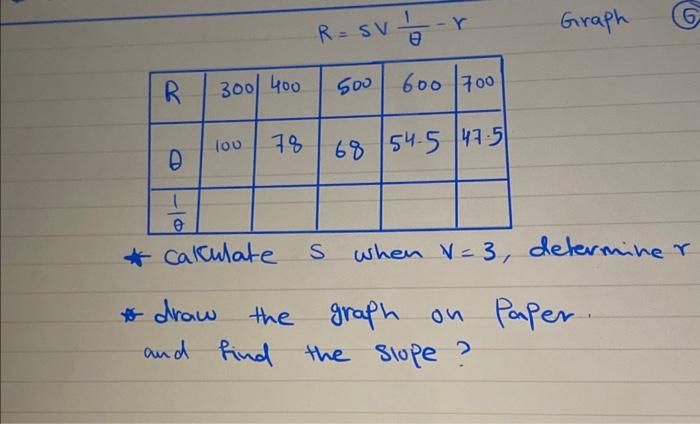 R = SV 1/θ - r Graph 6
R 300 400 500 600 700
θ 100 78 68 54.5 47.5
1/θ
* calculate S when V = 3, determine r
* draw the graph on Paper.
and find the slope ?